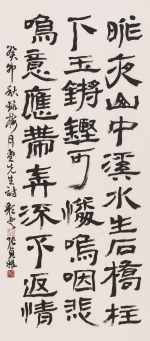 昨夜山中溪水生石橋柱
下玉鏘鏗可憐嗚咽悲
鳴意應帶奔流不返情
癸卯秋錄梅月堂先生詩